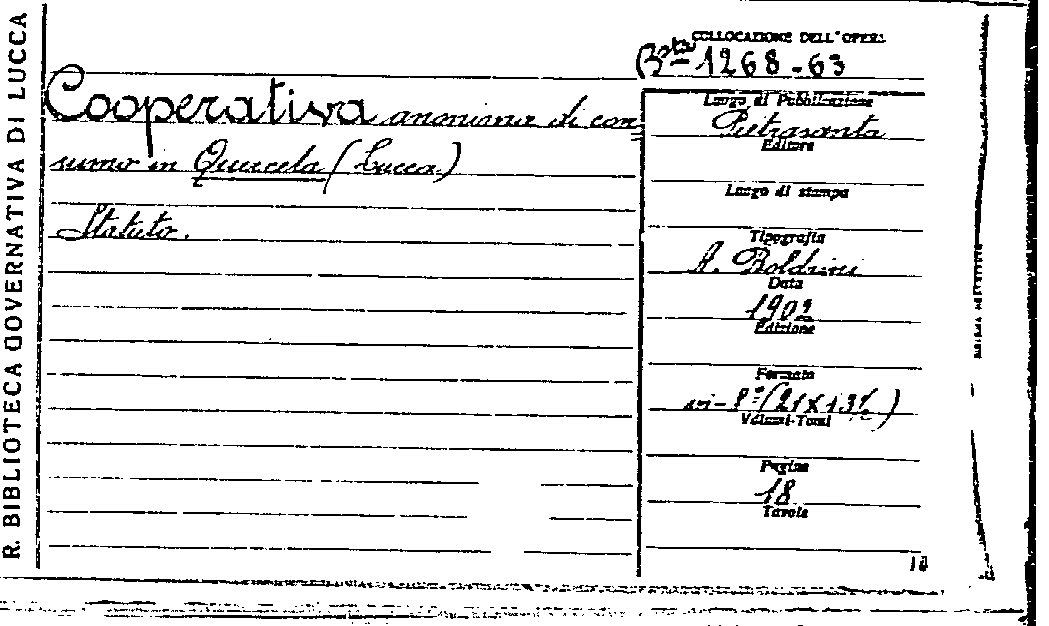 R. BIBLIOTECA GOVERNATIVA DI LUCCA
COLLOCAZIONE DELL'OPERA
Bta 1268-63
Cooperativa anonima di con=
sumo in Querceta (Lucca)
Statuto.
Luogo di Pubblicazione
Pietrasanta
Editore
Luogo di stampa
Tipografia
A. Boldrini
Data
1902
Edizione
Formato
in-8º (21 X 13½)
Volumi-Tomi
Pagine
18
Tavole